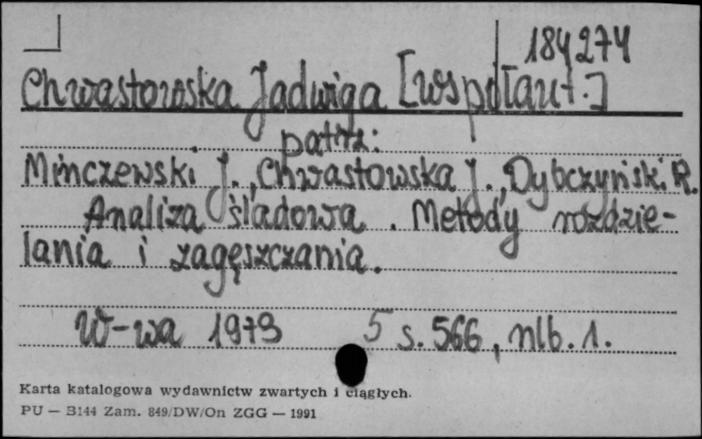 184274
Chwastowska Jadwiga [współaut.]
patrz:
Minczewski J., Chwastowska J., Dybczyński R.
Analiza śladowa. Metody rozdzie-
lania i zagęszczania.
W-wa 1973 5 s. 566, nlb. 1.
Karta katalogowa wydawnictw zwartych i ciągłych.
PU — B144 Zam. 849/DW/On ZGG — 1991